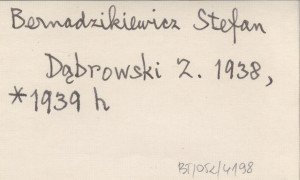 Bernadzikiewicz Stefan
Dąbrowski Z. 1938,
*1939 h
BT/OSZ/4198